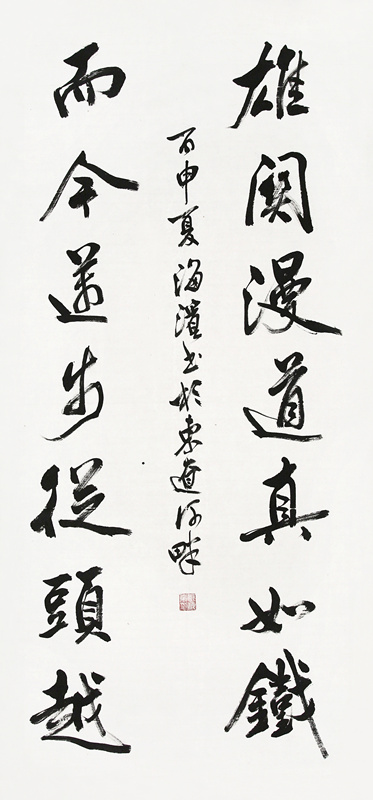 雄關漫道真如鐵
而今邁步從頭越
丙申夏海濱書於東遼河畔